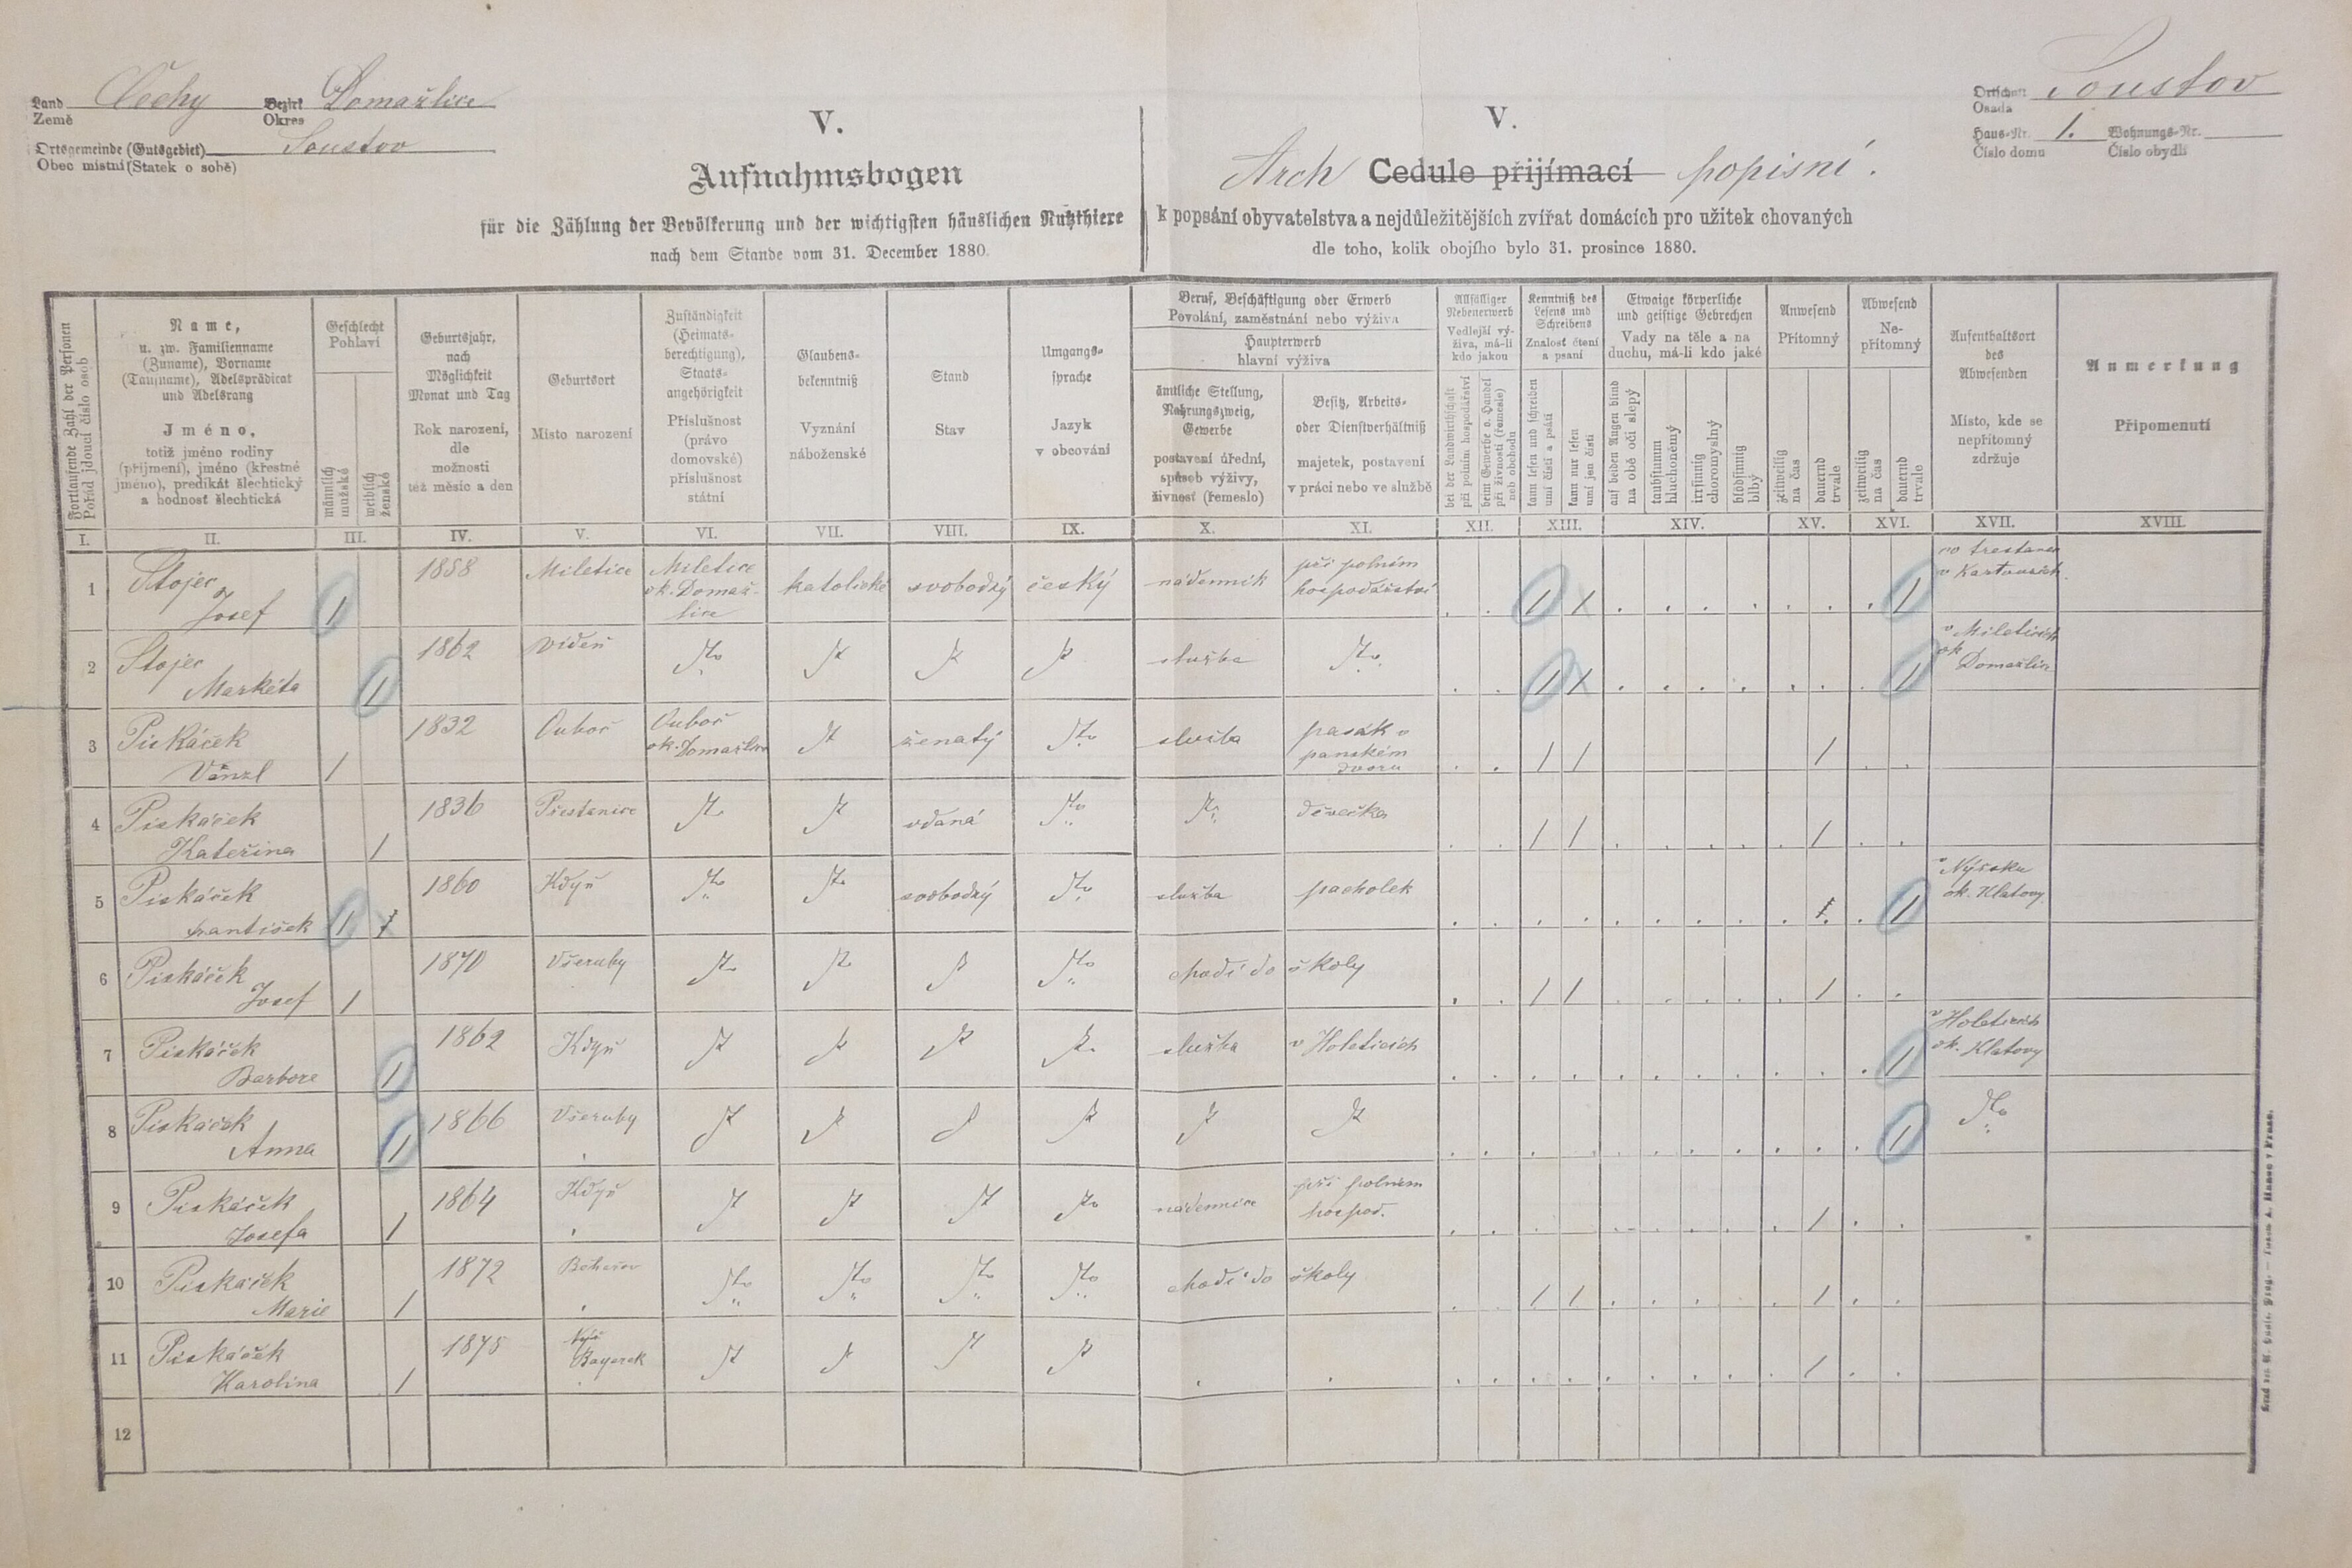 Land Čechy Bezirk Domažlice
Země Okres
Ortsgemeinde (Gutsgebiet) Soustov
Obec místní (Statek o sobě)
Ortschaft Soustov
Osada
Haus-Nr. 1. Wohnungs-Nr.
Číslo domu Číslo obydlí
V.
Aufnahmsbogen
für die Zählung der Bevölkerung und der wichtigsten häuslichen Nutzthiere
nach dem Stande vom 31. December 1880.
V.
Arch Cedule přijímací popisní.
k popsání obyvatelstva a nejdůležitějších zvířat domácích pro užitek chovaných
dle toho, kolik obojího bylo 31. prosince 1880.
Fortlaufende Zahl der Personen
Pořád jdoucí číslo osob
Name,
u. zw. Familienname
(Zuname), Vorname
(Taufname), Adelsprädicat
und Adelsrang
Jméno,
totiž jméno rodiny
(příjmení), jméno (křestné
jméno), predikát šlechtický
a hodnost šlechtická
Geschlecht
Pohlaví
männlich
mužské
weiblich
ženské
Geburtsjahr,
nach
Möglichkeit
Monat und Tag
Rok narození,
dle
možnosti
též měsíc a den
Geburtsort
Místo narození
Zuständigkeit
(Heimats-
berechtigung),
Staats-
angehörigkeit
Příslušnost
(právo
domovské)
příslušnost
státní
Glaubens-
bekenntniß
Vyznání
náboženské
Stand
Stav
Umgangs-
sprache
Jazyk
v obcování
Beruf, Beschäftigung oder Erwerb
Povolání, zaměstnání nebo výživa
Haupterwerb
hlavní výživa
ämtliche Stellung,
Nahrungszweig,
Gewerbe
postavení úřední,
způsob výživy,
živnost (řemeslo)
Besitz, Arbeits-
oder Dienstverhältniß
majetek, postavení
v práci nebo ve službě
Allfälliger
Nebenerwerb
Vedlejší vý-
živa, má-li
kdo jakou
bei der Landwirthschaft
při polním hospodářství
beim Gewerbe o. Handel
při živnosti (řemesle)
neb obchodu
Kenntniß des
Lesens und
Schreibens
Znalost čtení
a psaní
kann lesen und schreiben
umí čísti a psáti
kann nur lesen
umí jen čísti
Etwaige körperliche
und geistige Gebrechen
Vady na těle a na
duchu, má-li kdo jaké
auf beiden Augen blind
na obě oči slepý
taubstumm
hluchoněmý
irrsinnig
choromyslný
blödsinnig
blbý
Anwesend
Přítomný
zeitweilig
na čas
dauernd
trvale
Abwesend
Ne-
přítomný
zeitweilig
na čas
dauernd
trvale
Aufenthaltsort
des
Abwesenden
Místo, kde se
nepřítomný
zdržuje
Anmerkung
Připomenutí
I. II. III. IV. V. VI. VII. VIII. IX. X. XI. XII. XIII. XIV. XV. XVI. XVII. XVIII.
1 Stojec Josef 1 1858 Miletice Miletice ok. Domažlice katolické svobodný český nádenník při polním hospodářství 1 1 v Kartouzích
2 Stojec Markéta 1 1862 Vídeň služba 1 1 v Mileticích ok Domažlice
3 Piskáček Vánzl 1 1832 Ouboč Ouboč ok. Domažlice ženatý služba pasák v panském dvoru / / /
4 Piskáček Kateřina 1 1836 Přestanice vdaná děvečka / / /
5 Piskáček František 1 1860 Kdyň svobodný služba pacholek 1 ok. Klatovy
6 Piskáček Josef 1 1870 Všeruby chodí do školy / / /
7 Piskáček Barbora 1 1862 Kdyň služba v Holeticích 1 v Holeticích ok. Klatovy
8 Piskáček Anna 1 1866 Všeruby 1
9 Piskáček Josefa 1 1864 Kdyň nádennice při polném hospod. /
10 Piskáček Marie 1 1872 chodí do školy / / /
11 Piskáček Karolina 1 1875 /
12